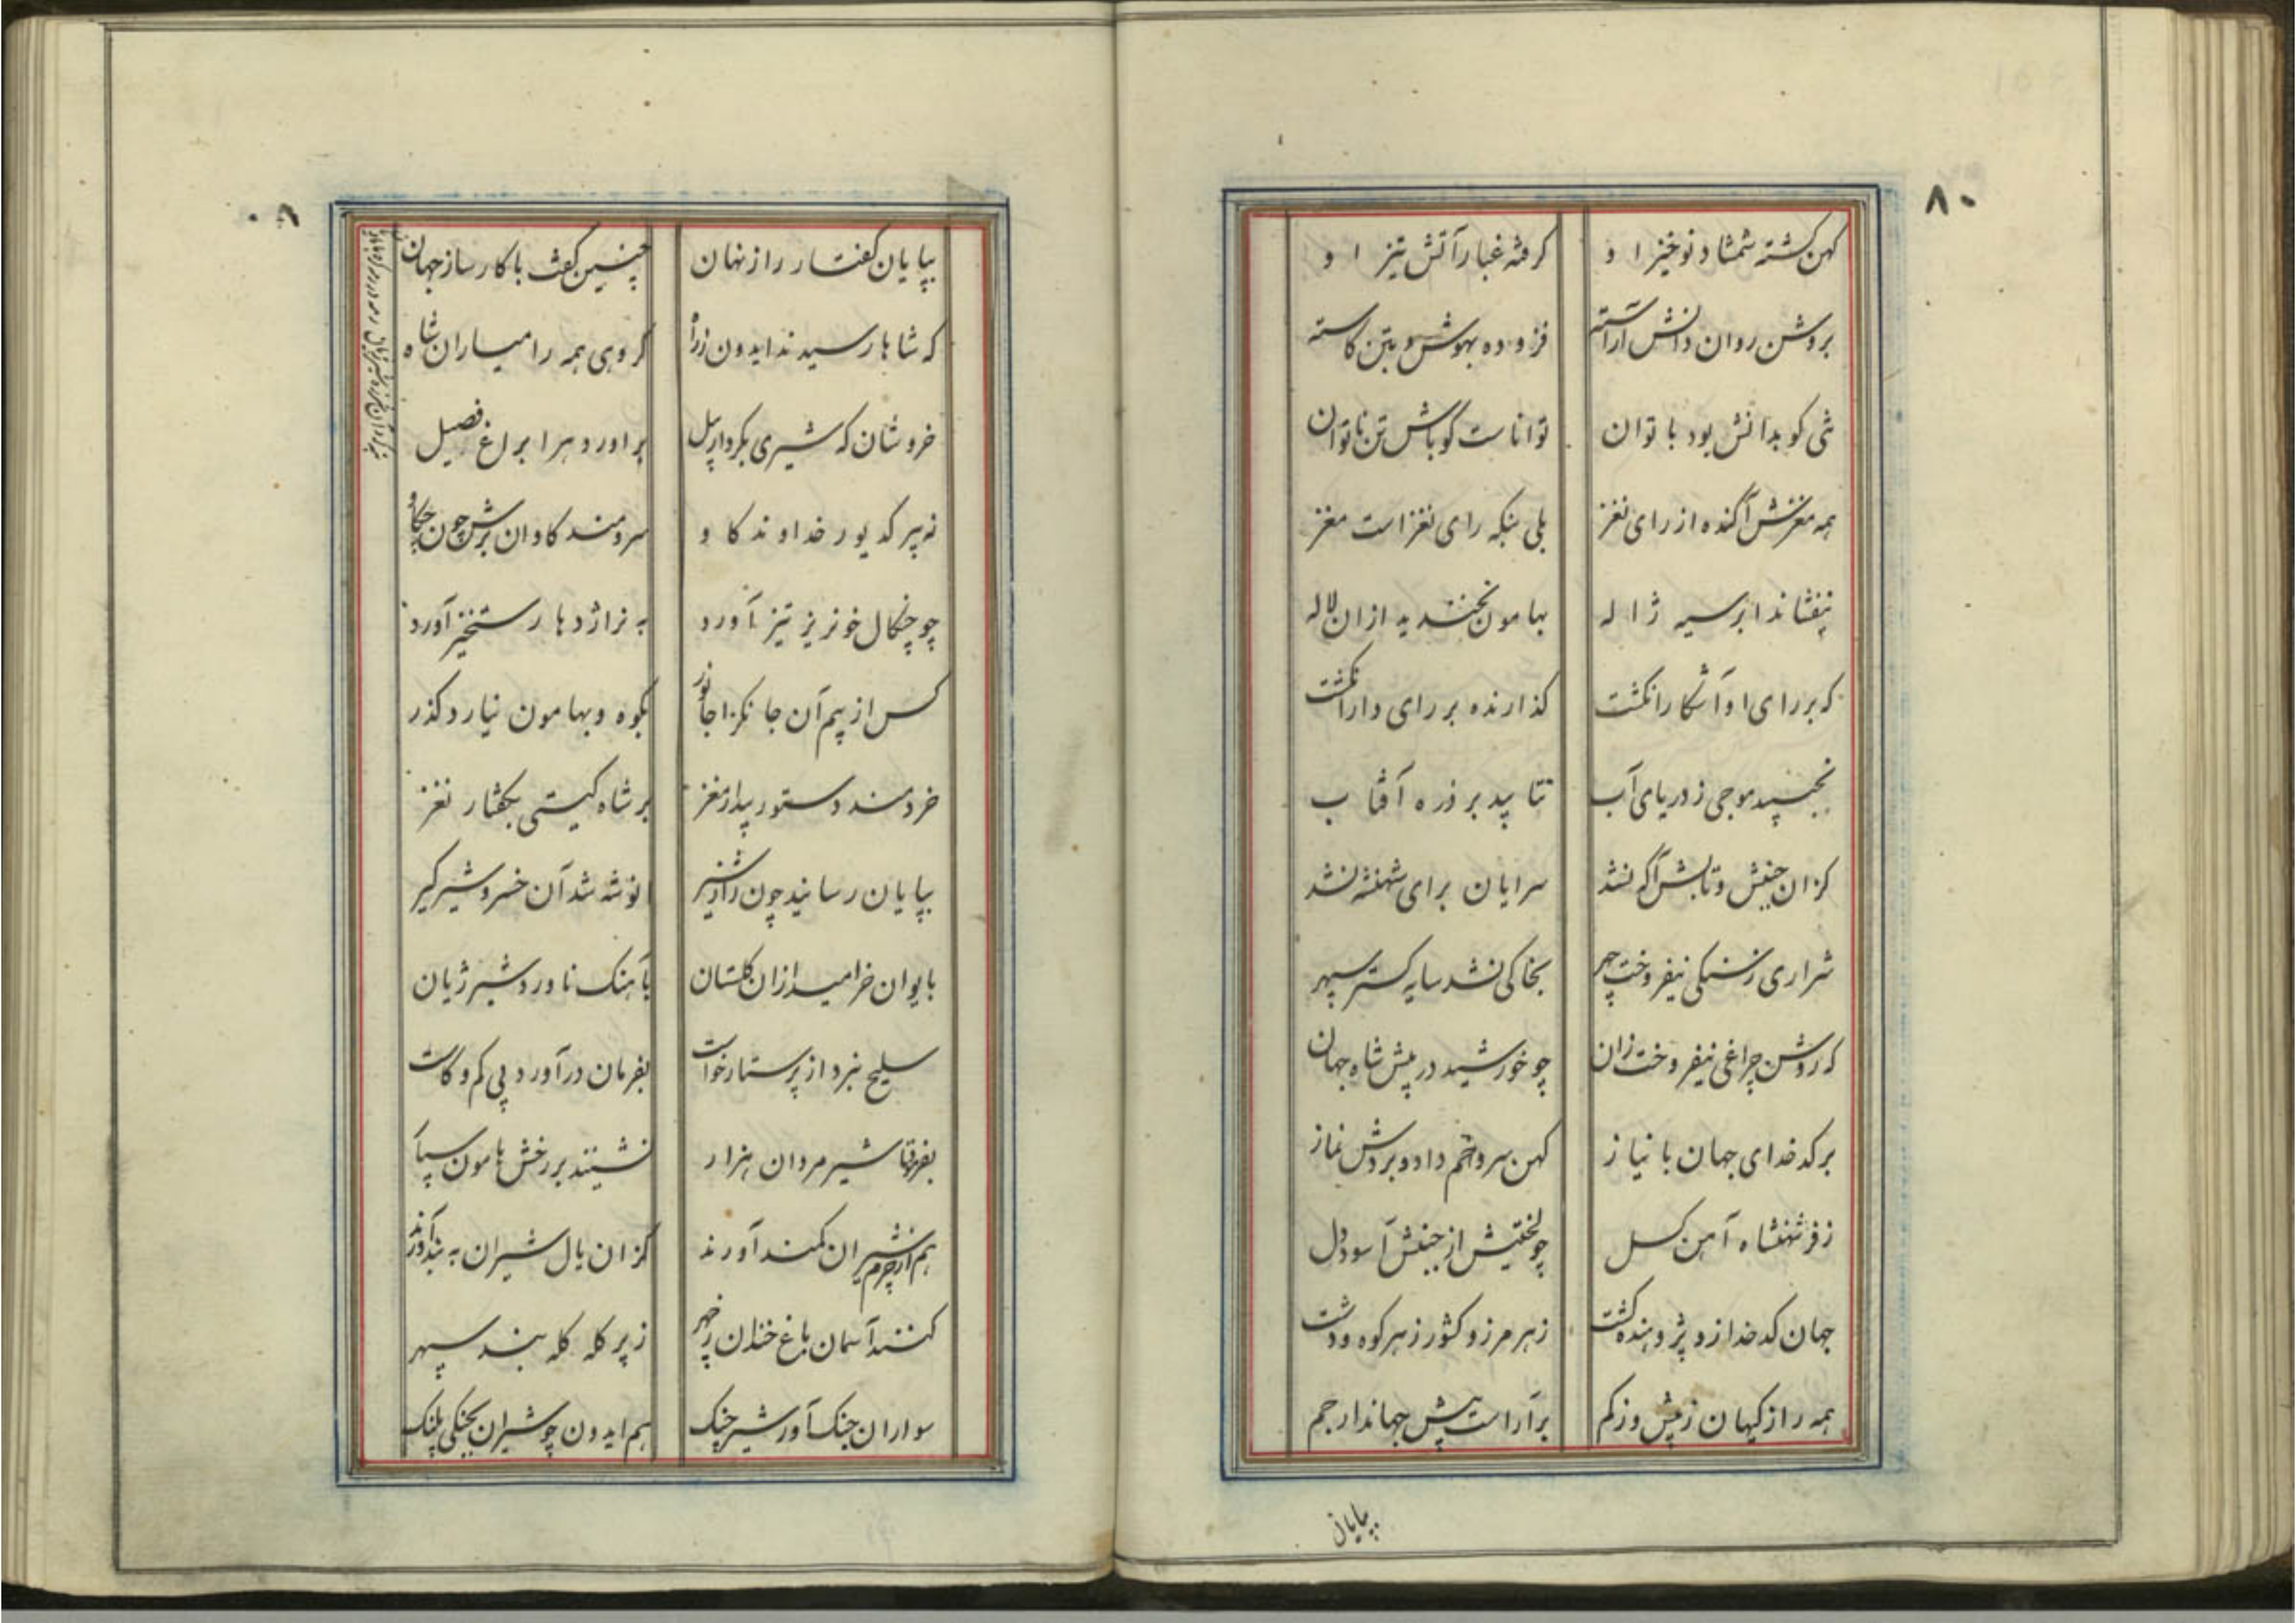 ۸۰
کهن گشته شمشاد نوخیز او
گرفته غبار آتش تیز او
بروشن روان دانش آراسته
فزوده بهوش و بتن کاسته
تنی کو بدانش بود با توان
تواناست گو باش تن ناتوان
همه مغزش آکنده از رای نغز
بلی بنگه رای نغز است مغز
نیفشاند ابر سیه ژاله
بهامون نخندید ازان لاله
که بر رای او آشکارا نگشت
گذارنده بر رای دارا نگشت
نجنبید موجی ز دریای آب
نتابید بر ذره آفتاب
کزان جنبش و تابش آگه نشد
سرایان برای شهنشه نشد
شراری ز سنگی نیفروخت چهر
بخاکی نشد سایه گستر سپهر
که روشن چراغی نیفروخت زان
چو خورشید در پیش شاه جهان
بر کدخدای جهان با نیاز
کهن سرو خم داد و بردش نماز
ز فر شهنشاه آهن گسل
چو لختیش از جنبش آسود دل
جهان کدخدا زو پژوهنده گشت
ز هر مرز و کشور ز هر کوه و دشت
همه راز کیهان ز بیش و ز کم
برآراست پیش جهاندار جم
بپایان
۸۰
بپایان گفتار راز نهان
چنین گفت با کارساز جهان
که شاها رسیدند ایدون ز راه
گروهی همه رامیاران شاه
خروشان که شیری بکردار پیل
براورد هرا براغ فصیل
نه پیر کدیور خداوند گاو
سرومند گاوان برش چون چکاو
چو چنگال خونریز تیز آورد
به نر اژدها رستخیز آورد
کس از بیم آن جانگزا جانور
بکوه و بهامون نیارد گذر
خردمند دستور بیدار مغز
بر شاه گیتی بگفتار نغز
بپایان رسانید چون راز شیر
نوشه شد آن خسرو شیرگیر
بایوان خرامید ازان گلستان
بآهنگ ناورد شیر ژیان
سلیح نبرد از پرستار خواست
بفرمان درآورد بی کم و کاست
بفرمود تا شیر مردان هزار
نشینند بر رخش هامون سپار
هم از چرم شیران کمند آورند
کزان یال شیران به بند آورند
کنند آسمان باغ خندان ز چهر
ز پر کله کله بندد سپهر
سواران جنگ آور شیر چنگ
هم ایدون چو شیران بجنگی پلنگ